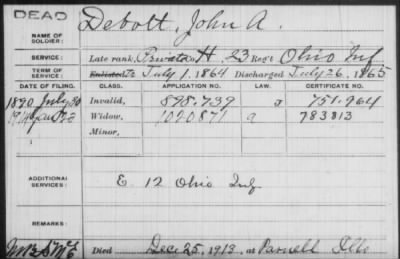 DEAD
NAME OF SOLDIER: Debolt, John A.
SERVICE: Late rank, Private Co. H, 23 Reg't Ohio Inf
TERM OF SERVICE: Enlisted July 1, 1864 Discharged July 26, 1865
DATE OF FILING. CLASS. APPLICATION NO. LAW. CERTIFICATE NO.
1890 July 30 Invalid, 898.739 J 751.964
1914 Jan 22 Widow, 1020871 a 783813
Minor,
ADDITIONAL SERVICES: E. 12 Ohio Inf
REMARKS:
Died Dec. 25, 1913, at Parnell Ills